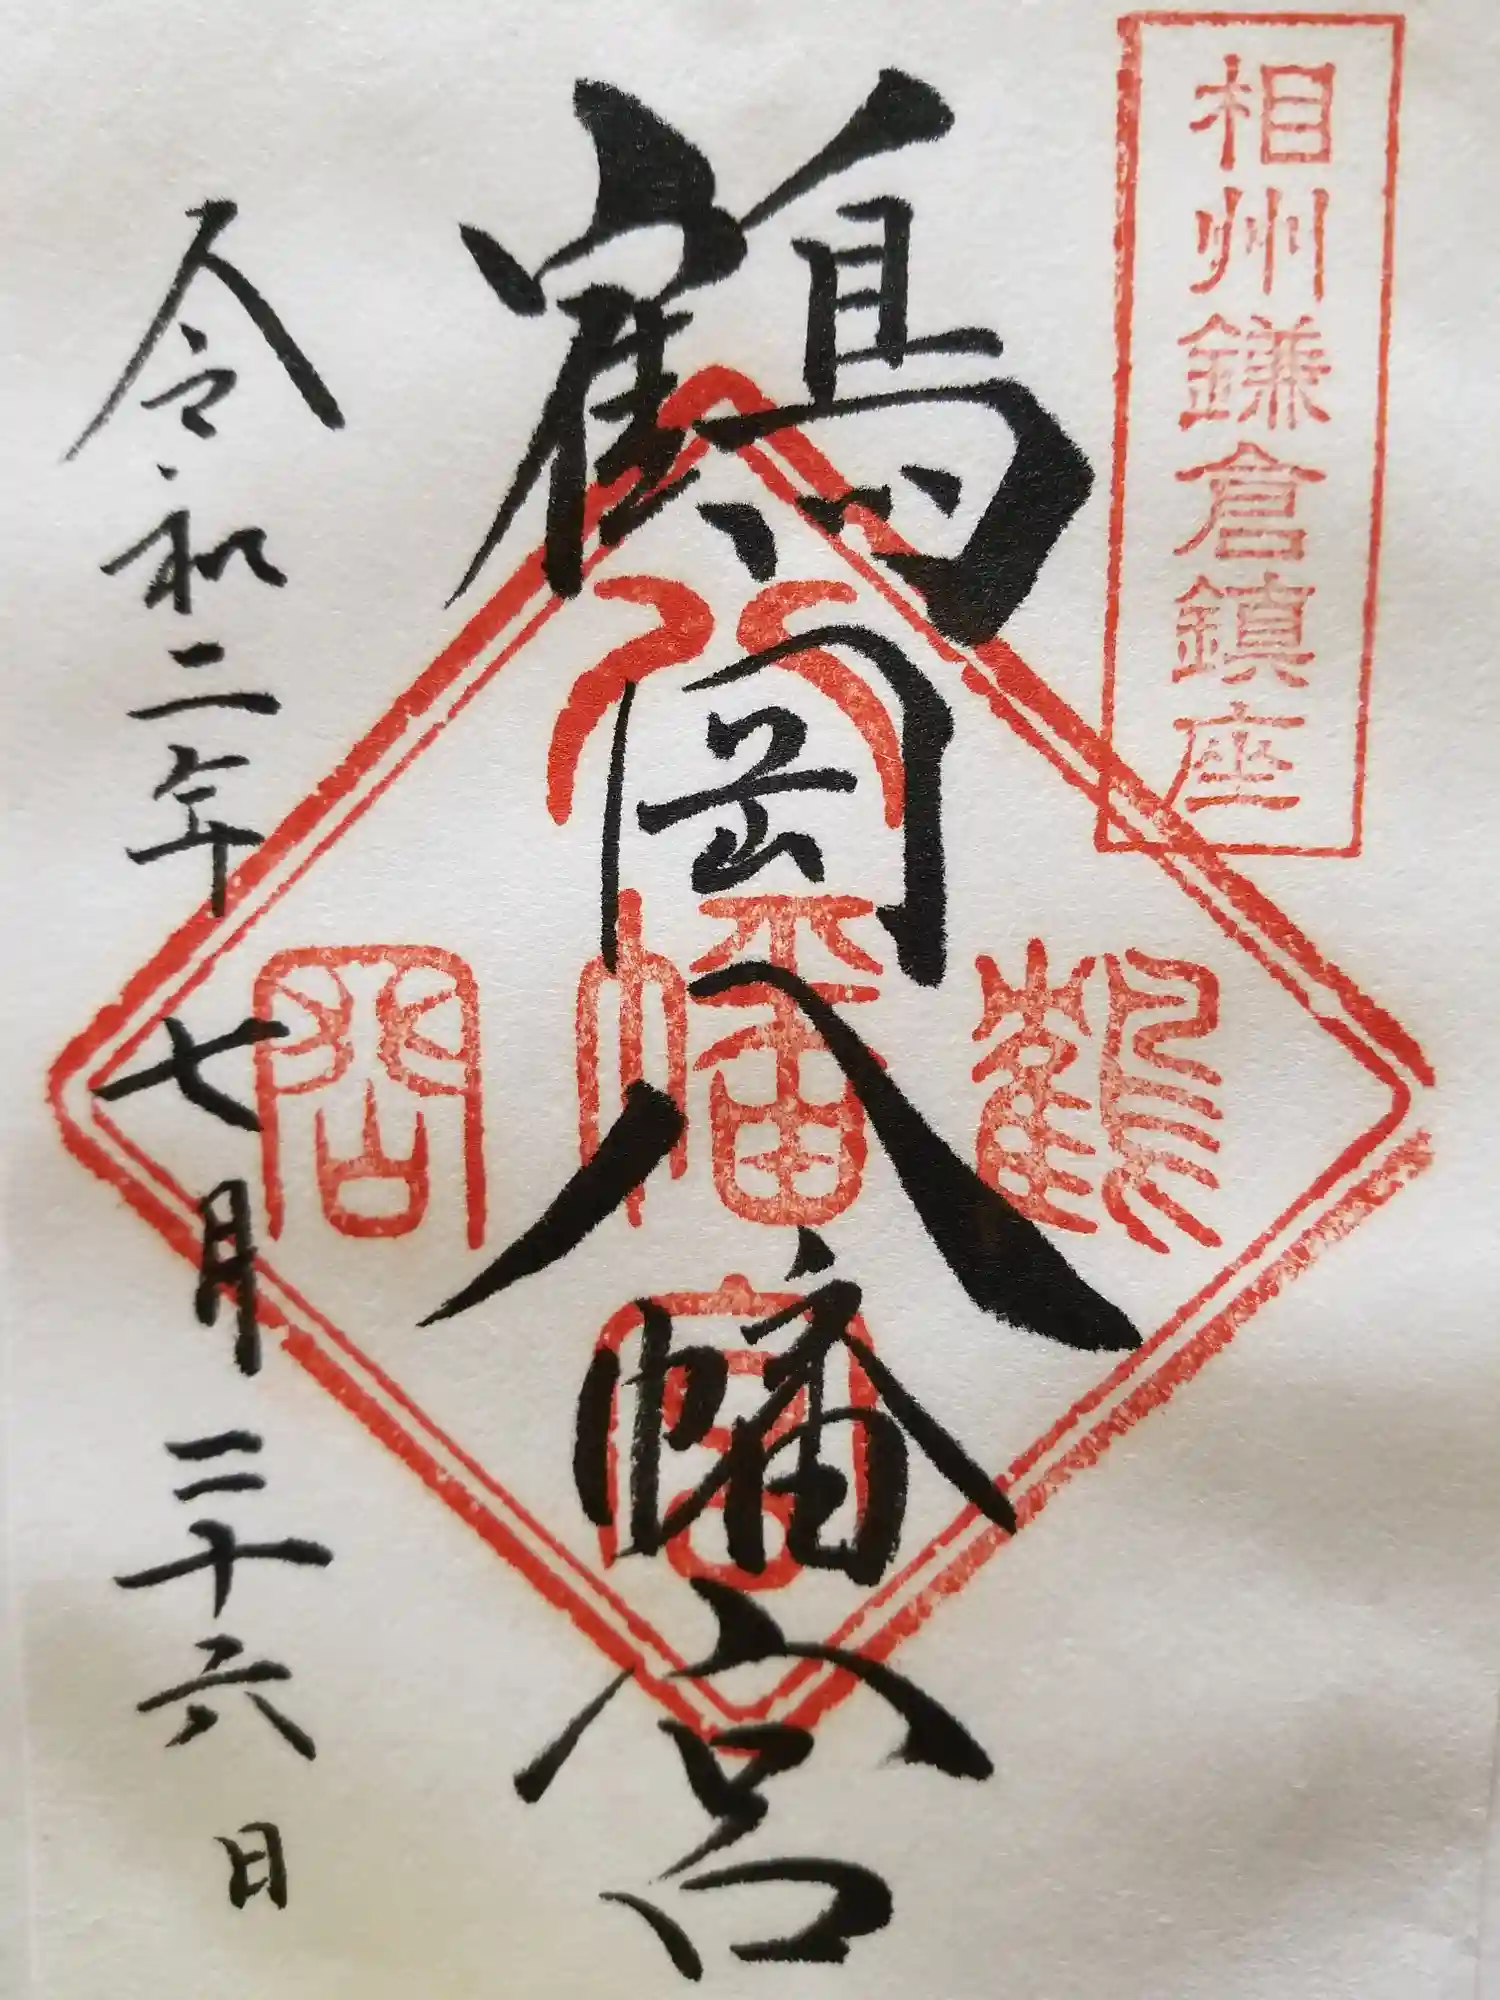 相州鎌倉鎮座
鶴岡八幡宮
鶴
八幡宮
岡
令和二年七月二十六日